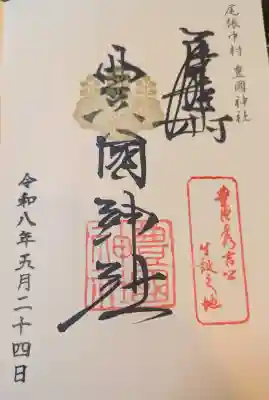 尾張中村 豊國神社
豊國神社
豊臣秀吉公
生誕之地
令和八年五月二十四日